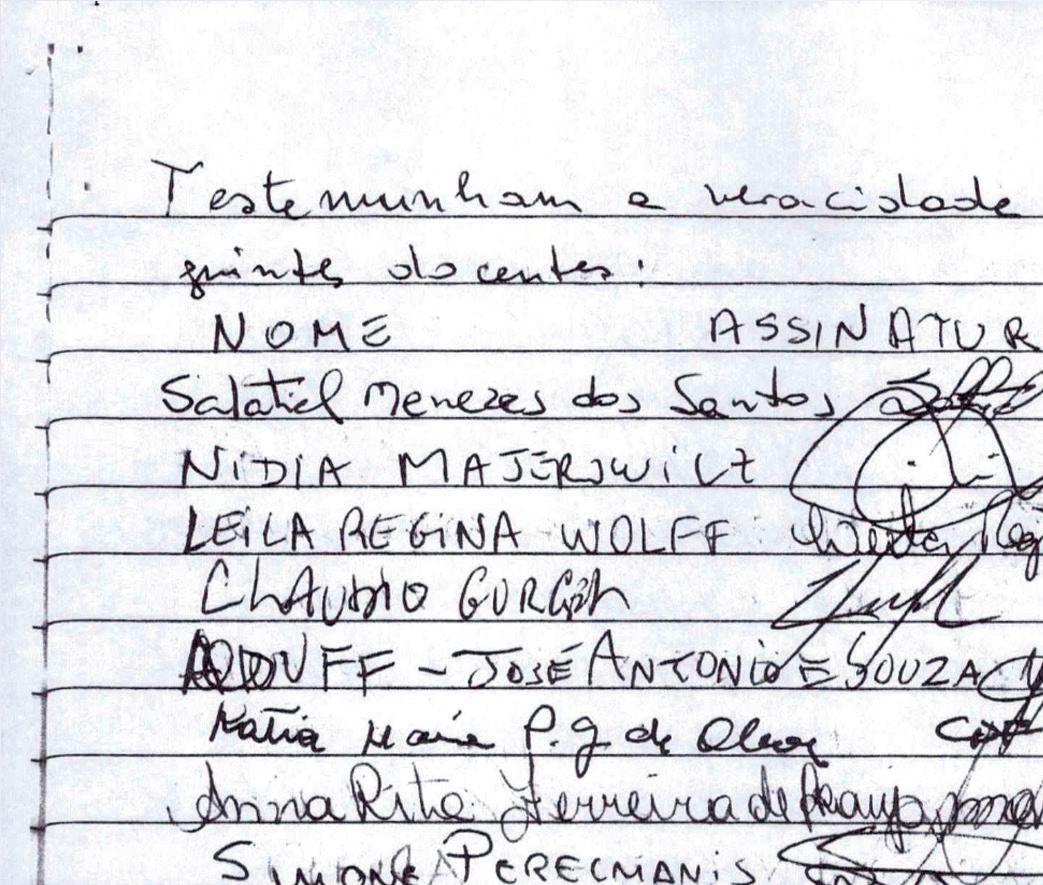 Testemunham a veracidade
guintes docentes:
NOME ASSINATUR
Salatiel Menezes dos Santos
NIDIA MAJEROWICZ
LEILA REGINA WOLFF
CLAUDIO GURGEL
ADUFF - JOSÉ ANTONIO E SOUZA
Katia Maria P. G. de
Anna Rita Ferreira de Araujo
SIMONE PERECMANIS